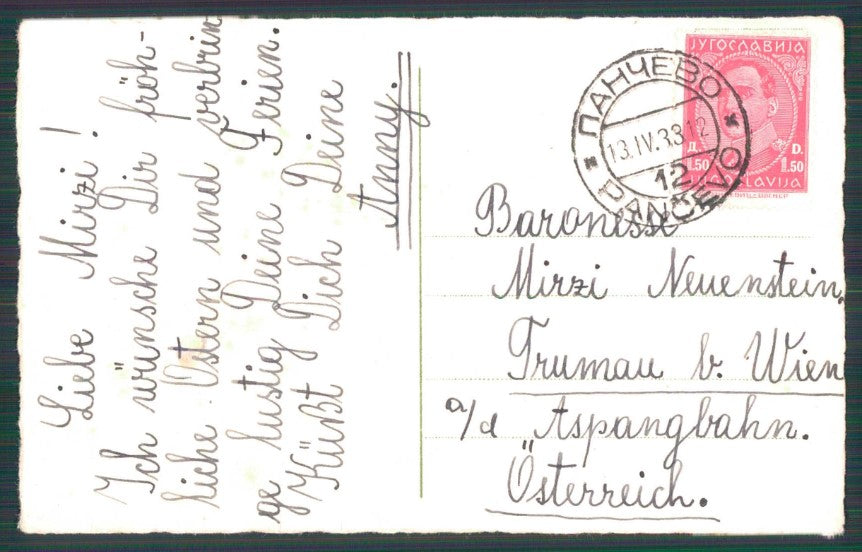 Liebe Mirzi!
Ich wünsche Dir fröh-
liche Ostern und verbrin
ge lustig Deine Ferien.
Küßt Dich Deine
Anny.
ЈУГОСЛАВИЈА
Д. D.
1.50 1.50
JUGOSLAVIJA
ПАНЧЕВО
13.IV.33 12
12
PANČEVO
Baronesse
Mirzi Neuenstein.
Trumau b. Wien
a/d Aspangbahn.
Österreich.